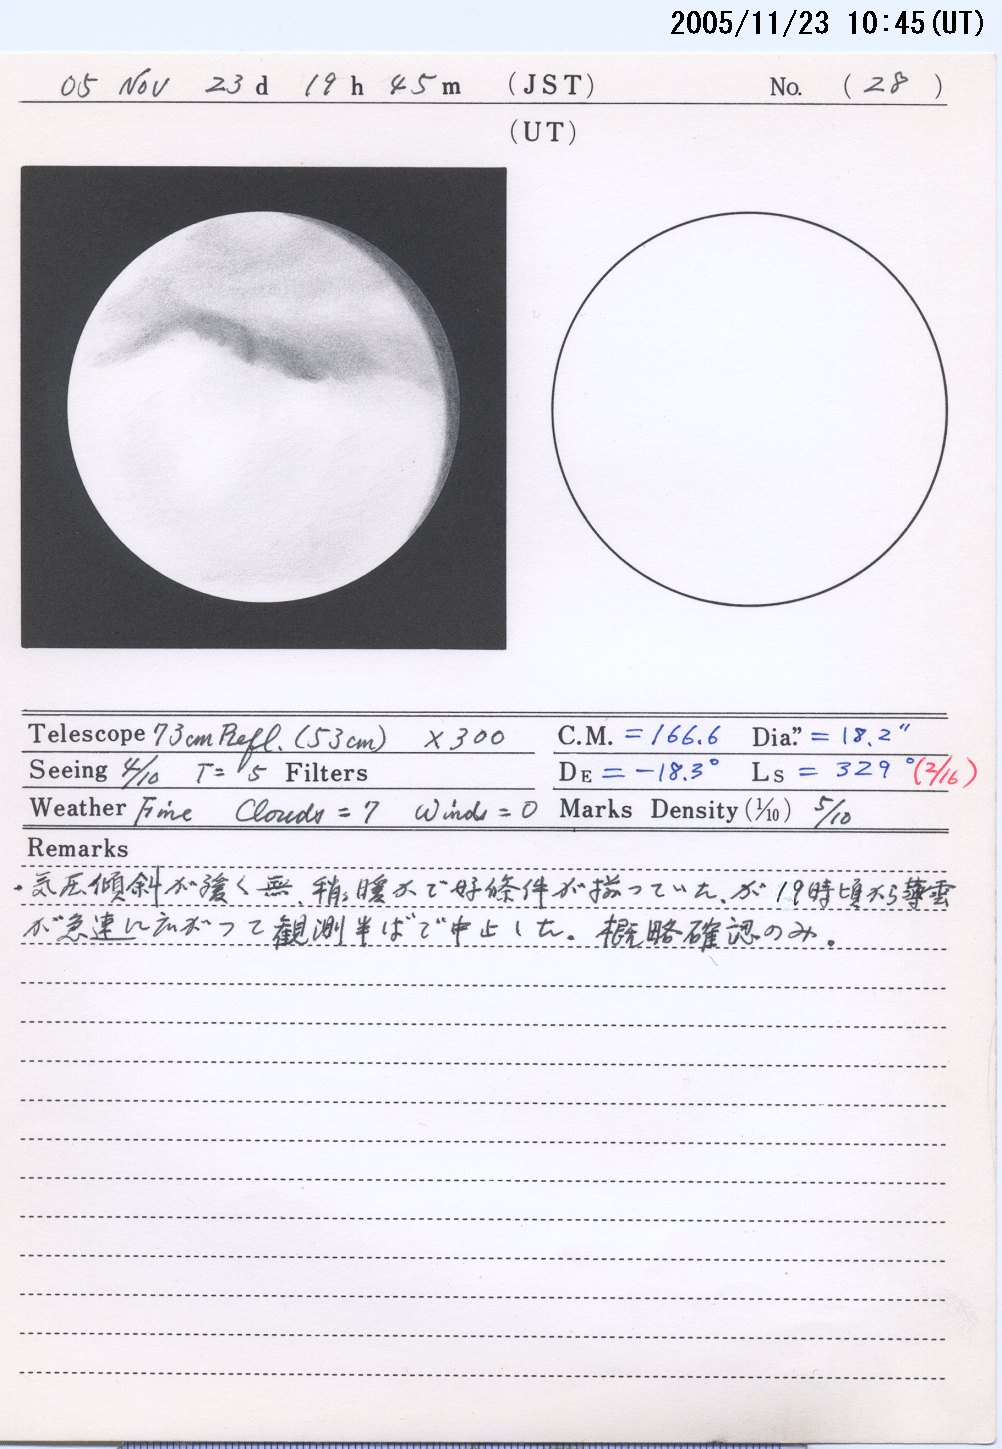 2005/11/23 10:45(UT)
05 Nov 23d 19h 45m (JST) No. (28)
(UT)
Telescope 73cm Refl. (53cm) ×300 C.M. = 166.6 Dia." = 18.2"
Seeing 4/10 T= 5 Filters DE = -18.3° Ls = 329° (2/16)
Weather Fine Clouds = 7 Winds = 0 Marks Density (1/10) 5/10
Remarks
・気圧傾斜が緩く無風、稍々暖かで好條件が揃っていた、が19時頃から薄雲
が急速に広がって観測半ばで中止した。概略確認のみ。